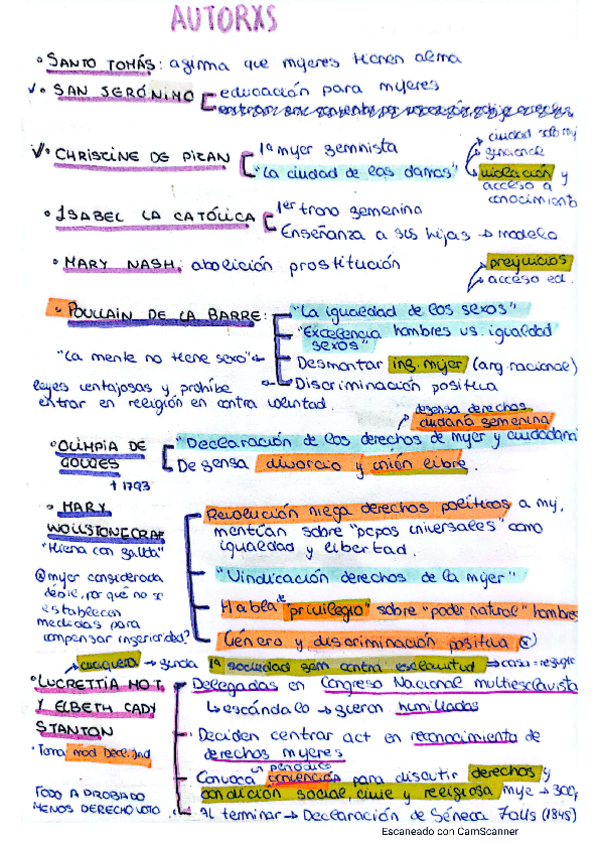 AUTORXS
• SANTO TOMÁS: afirma que mujeres tienen alma
✓• SAN JERÓNIMO educación para mujeres
✓• CHRISTINE DE PIZAN 1ª mujer feminista
"La ciudad de las damas"
→ ciudad solo muj
→ genealogía
→ violación y
acceso a
conocimiento
• ISABEL LA CATÓLICA 1er trono femenino
Enseñanza a sus hijas → modelo
• MARY NASH: abolición prostitución
prejuicios
acceso ed.
• POULLAIN DE LA BARRE: "La igualdad de los sexos"
"Excelencia hombres vs. igualdad
sexos"
"La mente no tiene sexo" ← Desmontar inf. mujer (arg. racional)
leyes ventajosas y prohíbe ← Discriminación positiva
entrar en religión en contra voluntad.
defensa derechos
ciudadanía femenina
• OLIMPIA DE
GOUGES
†1793
"Declaración de los derechos de mujer y ciudadana"
Defensa divorcio y unión libre.
• MARY
WOLLSTONECRAF
"Hiena con falda"
⊗ mujer considerada
débil, ¿por qué no se
establecen
medidas para
compensar inferioridad?
Revolución niega derechos políticos a muj,
mentían sobre "ppos universales" como
igualdad y libertad.
"Vindicación derechos de la mujer"
Habla de "privilegio" sobre "poder natural" hombres
Género y discriminación positiva ⊗
cuáquera → funda 1ª sociedad fem contra esclavitud → casa = refugio
• LUCRETTIA MOT
Y ELBETH CADY
STANTON
• Toma mod Decl. Ind
TODO APROBADO
MENOS DERECHO VOTO
Delegadas en Congreso Nacional Antiesclavista
↳ escándalo → fueron humilladas
Deciden centrar act en reconocimiento de
derechos mujeres
en periódico
Convoca convención para discutir derechos y
condición social, civil y religiosa muje → 300p
Al terminar → Declaración de Séneca Falls (1848)
Escaneado con CamScanner